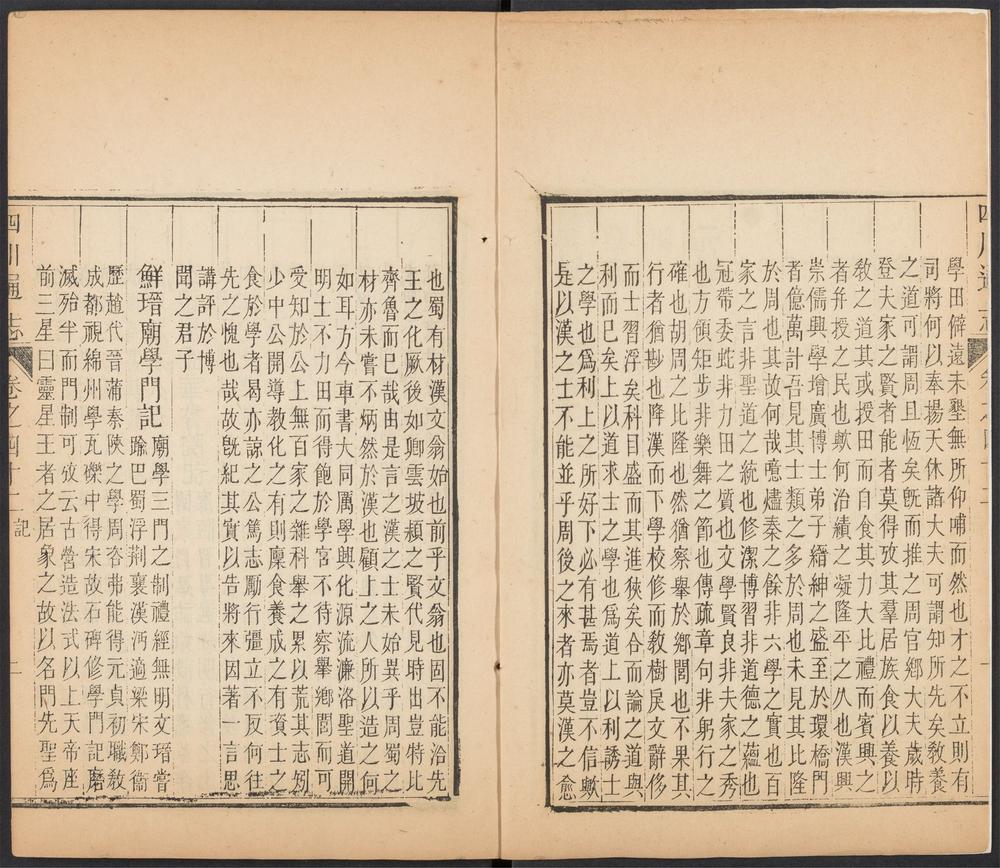 學田僻遠未墾無所仰哺而然也才之不立則有
司將何以奉揚天休諸大夫可謂知所先矣敎養
之道可謂周且恆矣旣而推之周官鄉大夫歲時
登夫家之賢者能者莫得攷其羣居族食以養以
敎之之道其或授田而自食其力大比禮而賓興之
者幷授之民也歟何治績之凝隆平之久也漢興
崇儒興學增廣博士弟子縉紳之盛至於環橋門
者億萬計吾見其士類之多於周也未見其比隆
於周也其故何哉噫燼秦之餘非六學之實也百
家之言非聖道之統也修潔博習非道德之蘊也
冠帶委蛇非力田之質也文學賢良非夫家之秀
也方領矩步非樂舞之節也傳疏章句非躬行之
確也胡周之比隆也然猶察舉於鄉閭也不果其
行者猶尠也降漢而下學校修而敎樹戾文辭侈
而士習浮矣科目盛而其進狹矣合而論之道與
利而已矣上以道求士之學也爲道上以利誘士
之學也爲利上之所好下必有甚焉者豈不信歟
是以漢之士不能並乎周後之來者亦莫漢之愈
也蜀有材漢文翁始也前乎文翁也固不能洽先
王之化厥後如卿雲坡潁之賢代見時出豈特比
齊魯而已哉由是言之漢之士未始異乎周蜀之
材亦未嘗不炳然於漢也顧上之人所以造之何
如耳方今車書大同厲學興化源流濂洛聖道開
明士不力田而得飽於學宮不待察舉鄉閭而可
愛知於公上無百家之雜科舉之累以荒其志矧
少中公開導敎化之有則廩食養成之有資士之
食於學者曷亦諒之公篤志勵行彊立不反何往
先之愧也哉故旣紀其實以告將來因著一言思
講評於博
聞之君子
鮮瑨廟學門記
廟學三門之制禮經無明文瑨嘗
踰巴蜀浮荆襄漢沔適梁宋鄭衞
歷趙代晉蒲秦陜之學周咨弗能得元貞初職敎
成都視綿州學瓦礫中得宋故石碑修學門記磨
滅殆半而門制可攷云古營造法式以上天帝座
前三星曰靈星王者之居象之故以名門先聖爲
四川通志
卷之四十二
記
二